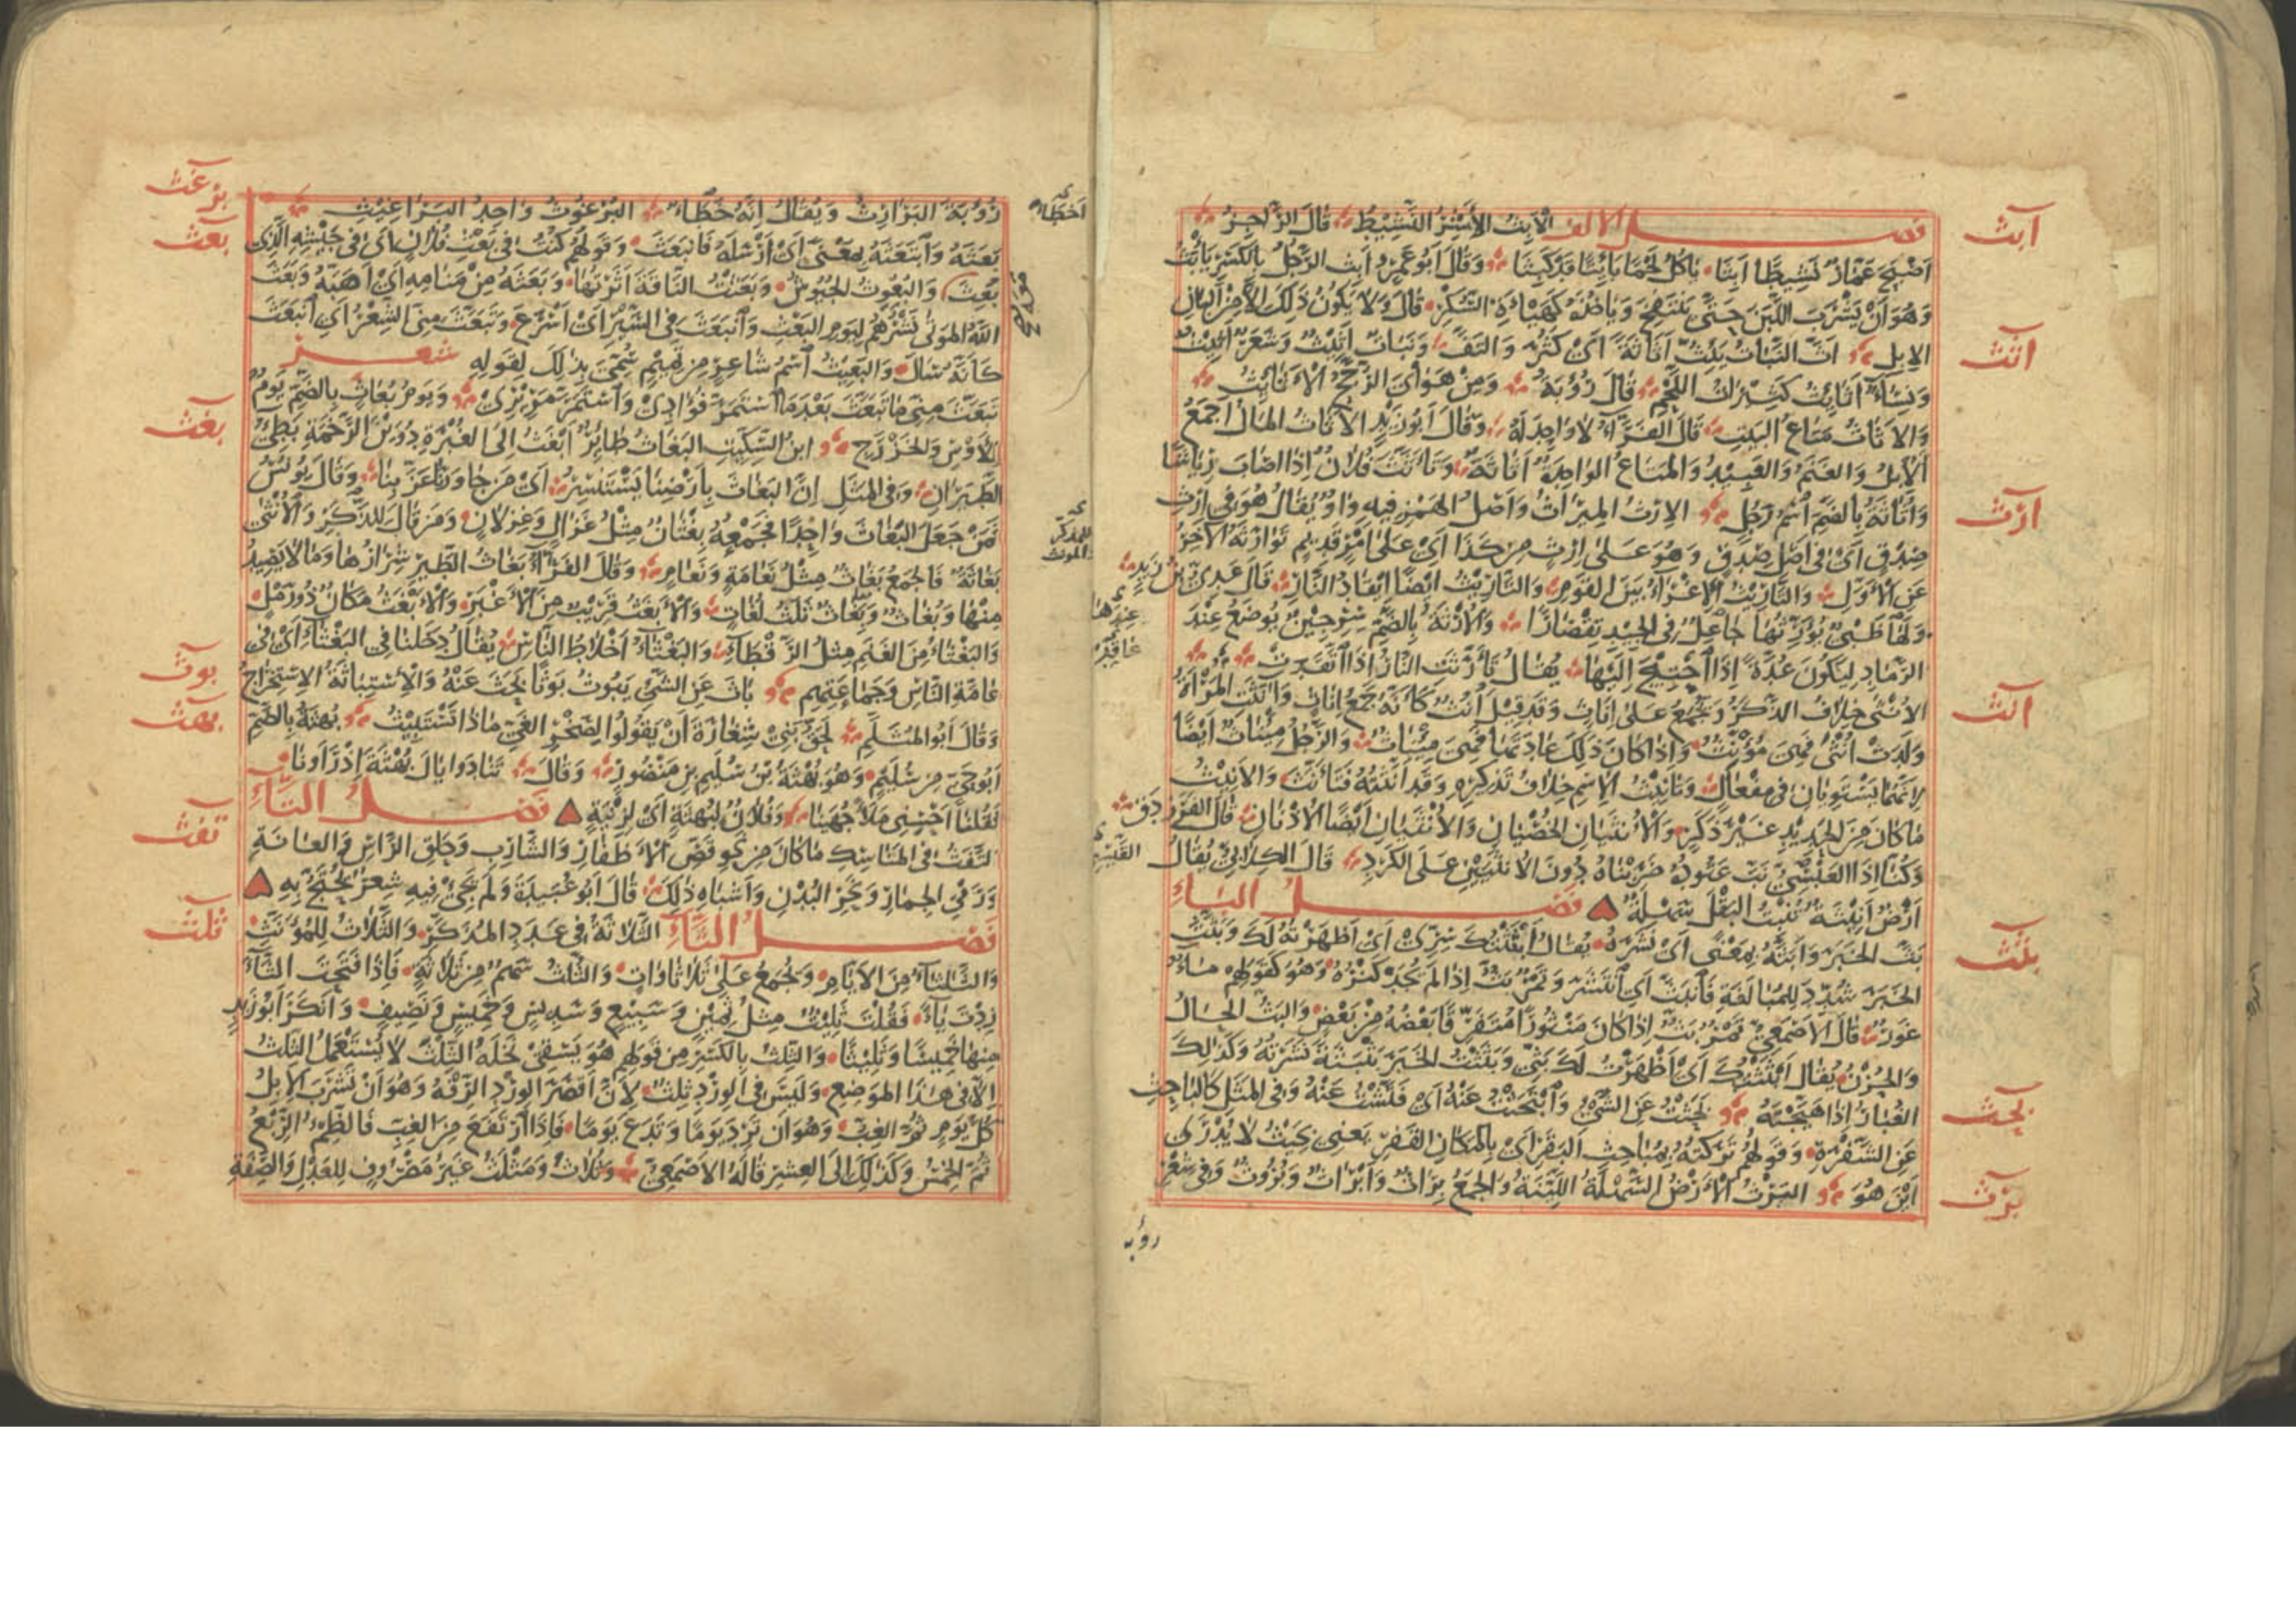 فصل الالف الأبث الأشر النشيط قال الراجز
ابث
اصبح عمار نشيطا ابثا ياكل لحما بايتا قد كبثا وقال ابو عمرو ابث الرجل بالكسر يابث
وهو ان يشرب اللبن حتى ينتفخ وياخذه كهيئة السكر قال ولا يكون ذلك الا من البان
الابل اث النبات يئث اثاثة اى كثر والتف ونبات اثيث وشعر اثيث
اثث
ونساء اثايث كثيرات اللحم قال رؤبة ومن هواى الرجح الاثايث
والاثاث متاع البيت قال الفراء لا واحد له وقال ابو زيد الاثاث المال اجمع
الابل والغنم والعبيد والمتاع الواحدة اثاثة وتاثث فلان اذا اصاب رياشا
واثاثة بالضم اسم رجل الارث الميراث واصل الهمز فيه واو يقال هو فى ارث
ارث
صدق اى فى اصل صدق وهو على ارث من كذا اى على امر قديم توارثه الآخر
عن الاول والتاريث الاغراء بين القوم والتاريث ايضا ايقاد النار قال عدى بن زيد
ولها ظبى يؤرثها جاعل فى الجيد تقصارا والارثة بالضم سرجين يوضع عند
عندها
الرماد ليكون عدة اذا احتيج اليها يقال تأرثت النار اذا اتقدت
الانثى خلاف الذكر وتجمع على اناث وقد قيل انث كانه جمع اناث وآنثت المراة
انث
ولدت انثى فهى مؤنث واذا كان ذلك عادتها فهى ميناث والرجل ميناث ايضا
لانهما يستويان فى مفعال وتانيث الاسم خلاف تذكيره وقد انثته فتانث والانيث
ما كان من الحديد غير ذكر والانثيان الخصيان والانثيان ايضا الاذنان قال الفرزدق
وكنا اذا العبسى نب عتوده ضربناه دون الانثيين على الكرد قال الكلابى يقال
القيسى
ارض انيثة تنبت البقل سهلة فصل الباء
بث الخبر وابثه بمعنى اى نشره يقال ابثثتك سرى اى اظهرته لك وبثث
بثث
الخبر شدد للمبالغة فانبث اى انتشر وتمر بث اذا لم يجد كنزه وهو كقولهم ماء
غور قال الاصمعى تمر بث اذا كان منثورا متفرقا بعضه من بعض والبث الحال
والحزن يقال ابثثتك اى اظهرت لك بثى وبثثت الخبر بثبثة نشرته وكذلك
الغبار اذا هيجته بحثت عن الشىء وابتحثت عنه اى فتشت عنه وفى المثل كالباحث
بحث
عن الشفرة وقولهم تركته بمباحث البقر اى بالمكان القفر يعنى بحيث لا يدرى
اين هو البرث الارض السهلة اللينة والجمع براث وابراث وبروث وفى شعر
برث
رؤبه
رؤبة البرارث ويقال انه خطاء البرغوث واحد البراغيث
اخطاء
برغث
بعثه وابتعثه بمعنى اى ارسله فانبعث وقولهم كنت فى بعث فلان اى فى جيشه الذى
بعث
بعث والبعوث الجيوش وبعثت الناقة اثرتها وبعثه من منامه اى اهبه وبعث
الله الموتى نشرهم ليوم البعث وانبعث فى السير اى اسرع وتبعث منى الشعر اى انبعث
كانه سال والبعيث اسم شاعر من تميم سمى بذلك لقوله شعر
تبعث منى ما تبعث بعدما استمر فؤادى واستمر مريرى ويوم بعاث بالضم يوم
للاوس والخزرج ابن السكيت البغاث طائر ابغث الى الغبرة دوين الرخمة بطىء
بغث
الطيران وفى المثل ان البغاث بارضنا يستنسر اى من جاورنا عز بنا وقال يونس
فمن جعل البغاث واحدا فجمعه بغثان مثل غزال وغزلان ومن قال للذكر والانثى
للمذكر
بغاثة فالجمع بغاث مثل نعامة ونعام وقال الفراء بغاث الطير شرارها وما لا يصيد
منها وبغاث وبغاث ثلث لغات والابغث قريب من الاغبر والابغث مكان ذو رمل
والبغثاء من الغنم مثل الرقطاء والبغثاء اخلاط الناس يقال دخلنا فى البغثاء اى فى
عامة الناس وجماعتهم باث عن الشىء يبوث بوثا بحث عنه والاستباثة الاستخراج
بوث
وقال ابو المثلم لحق بنى شغارة ان يقولوا لصخر الغى ماذا تستبيث بهثة بالضم
بهث
ابو حى من سليم وهو بهثة بن سليم بن منصور وقال تنادوا يال بهثة اذ راونا
فقلنا احسنى ملأ جهينا وفلان لبهثة اى لزنية فصل التاء
التفث فى المناسك ما كان من نحو قص الاظفار والشارب وحلق الراس والعانة
تفث
ورمى الجمار ونحر البدن واشباه ذلك قال ابو عبيدة ولم يجئ فيه شعر يحتج به
فصل الثاء الثلاثة فى عدد المذكر والثلاث للمؤنث
ثلث
والثلثاء من الايام وتجمع على ثلاثاوات والثلث سهم من ثلاثة فاذا فتحت الثاء
زدت ياء فقلت ثليث مثل ثمين وسبيع وسديس وخميس ونصيف وانكر ابو زيد
منها خميسا وثليثا والثلث بالكسر من قولهم هو يسقى نخله الثلث لا يستعمل الثلث
الا فى هذا الموضع وليس فى الورد ثلث لان اقصر الورد الرفه وهو ان تشرب الابل
كل يوم ثم الغب وهو ان ترد يوما وتدع يوما فاذا ارتفع من الغب فالظمء الربع
ثم الخمس وكذلك الى العشر قاله الاصمعى وثلاث ومثلث غير مصروف للعدل والصفة